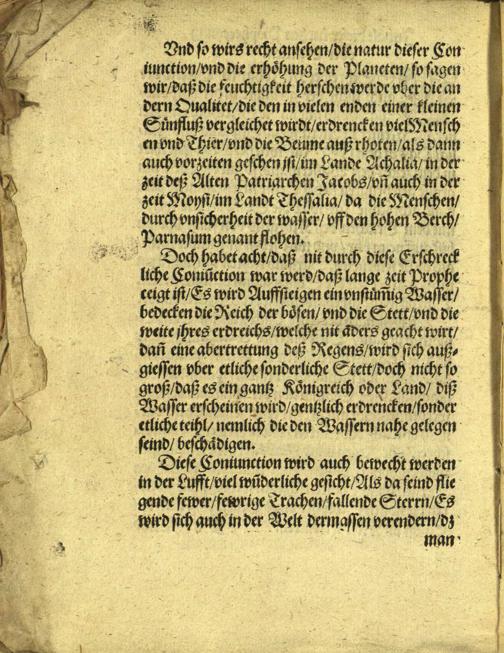 Vnd so wirs recht ansehen/die natur dieser Con
iunction/vnd die erhöhung der Planeten/ so sagen
wir/daß die feuchtigkeit herschen werde vber die an
dern Qualitet/die den in vielen enden einer kleinen
Sünfluß vergleichet wirdt/erdrencken viel Mensch
en vnd Thier/vnd die Beume auß rhoten/als dann
auch vorzeiten geschen jst/im Lande Achalia/in der
zeit deß Alten Patriarchen Jacobs/vñ auch in der
zeit Moysi/im Landt Thessalia/ da die Menschen/
durch vnsicherheit der wasser/ vff den hohen Berch/
Parnasum genant flohen.
Doch habet acht/daß nit durch diese Erschreck
liche Coniũction war werd/daß lange zeit Prophe
ceigt ist/Es wird Auffsteigen ein vnstüm̃ig Wasser/
bedecken die Reich der bösen/ vnd die Stett/vnd die
weite jhres erdreichs/welche nit ãders geacht wirt/
dañ eine abertrettung deß Regens/wird sich auß-
giessen vber etliche sonderliche Stett/doch nicht so
groß/daß es ein gantz Königreich oder Land/ diß
Wasser erscheinen wird/gentzlich erdrencken/sonder
etliche teihl/ nemlich die den Wassern nahe gelegen
seind/ beschädigen.
Diese Coniunction wird auch bewecht werden
in der Lufft/viel wũderliche gesicht/Als da seind flie
gende fewer/fewrige Trachen/fallende Sterrn/Es
wird sich auch in der Welt dermassen verendern/dz
man